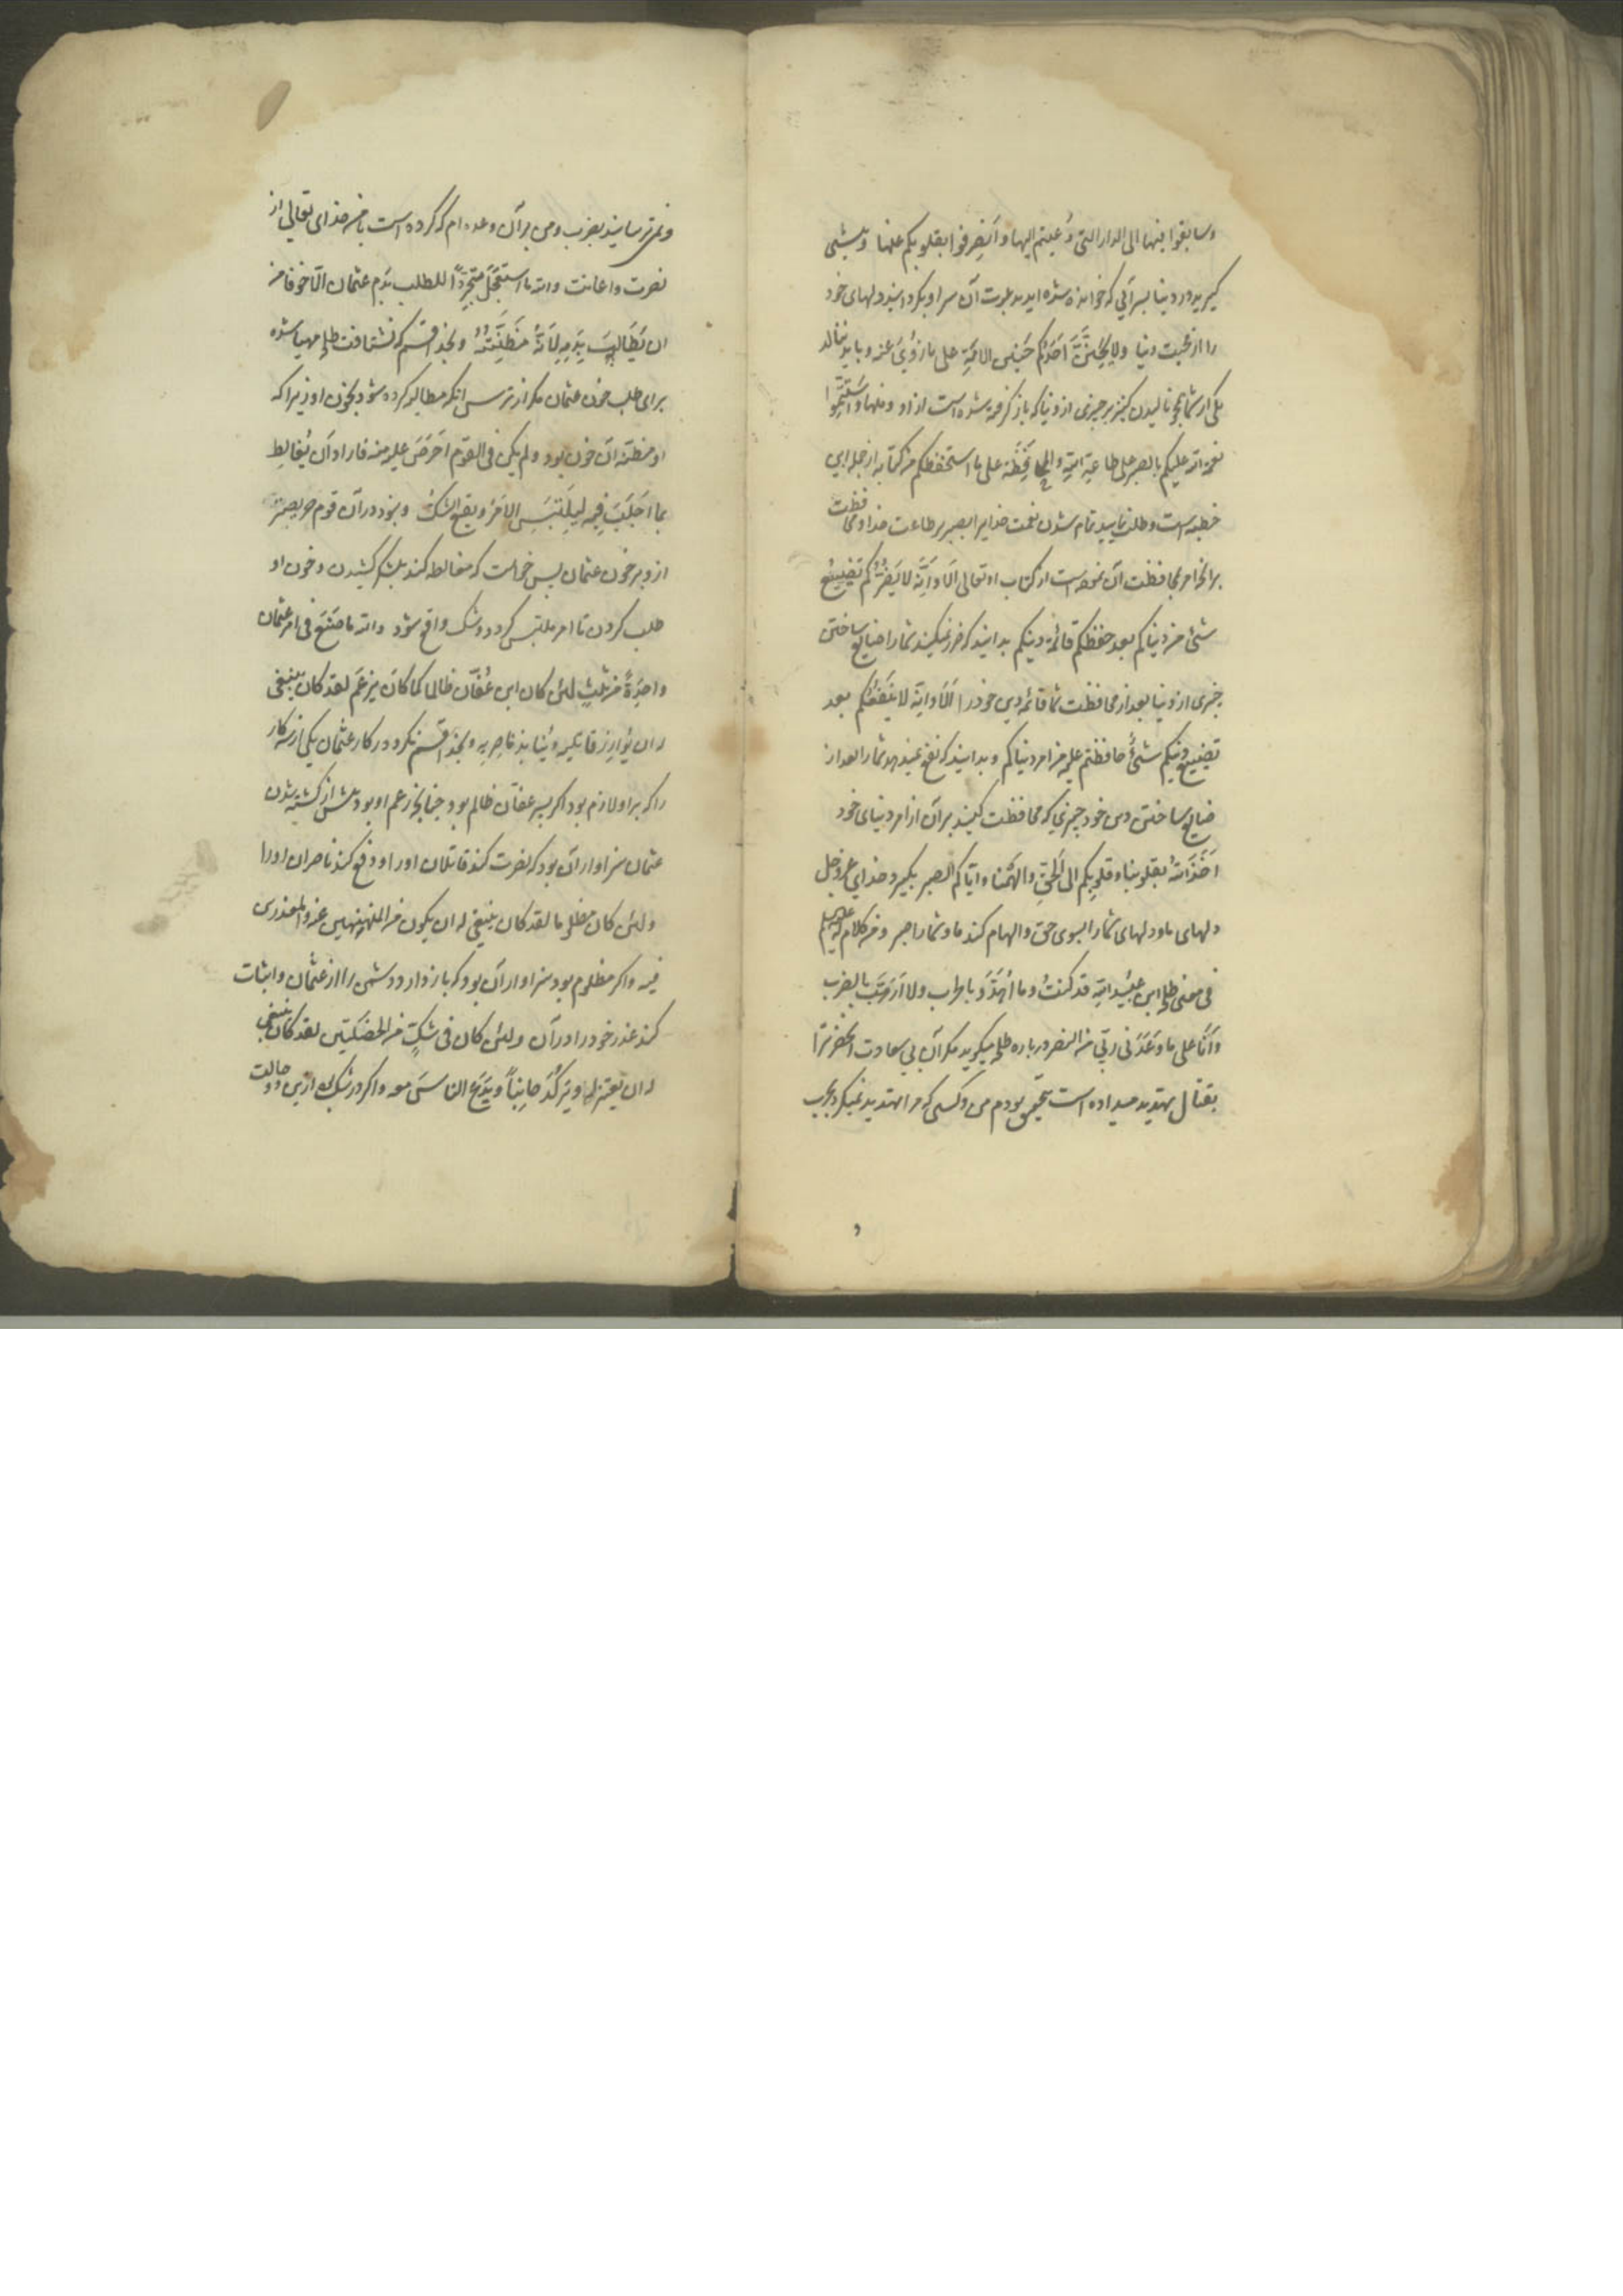 وسابقوا فیها الی الدار التی دُعیتم الیها و اَنصَرِفوا بقلوبکم عنها و پیشی
گیرید در دنیا بسرائی که خوانده شده اید بدعوت آن سرا و بگردانید دلهای خود
را از محبت دنیا ولا یَحِنَّنَّ اَحَدُکُم حَنینَ الاَمَةِ علی ما زُوِیَ عنه و باید ننالد
یکی از شما همچو نالیدن کنیز بر چیزی از دنیا که بازگرفته شده است از او منها و اسْتَتِمّوا
نعمة الله علیکم بالصبر علی طاعةِ اللهِ والمحافَظَة علی ما استحفظکم من کتابه از جمله این
خطبه است و طلب نمایید تمام شدن نعمت خدایرا بصبر بر طاعت خدا و محافظت
برانچه امر بمحافظت آن نموده است از کتاب او تعالی اَلا وَاِنَّه لا یَضُرُّکُم تضییعُ
شیٔ من دنیاکم بعد حفظکم قائمة دینکم بدانید که ضرر نمیکند شما را ضایع ساختن
چیزی از دنیا بعد از محافظت شما قائمه دین خود را اَلا وَانّه لا یَنفَعُکم بعد
تضییع دینکم شئٌ حافظتم علیه من امر دنیاکم و بدانید که نفع نمیدهد شما را بعد از
ضایع ساختن دین خود چیزی که محافظت کنید بر آن از امر دنیای خود
اَخَذَ اللهُ بقلوبنا و قلوبکم الی الحَقِّ و اَلهَمَنا و ایّاکم الصبر بگیرد خدای عز و جل
دلهای ما و دلهای شما را بسوی حق و الهام کند ما و شما را صبر و من کلام له علیه السلم
فی معنی طلحة ابن عُبَیدالله قد کنتُ و ما اُهَدَّدُ بالحرب ولا اُرَهَّبُ بالضرب
وَاَنَا علی ما وَعَدَنی ربّی من النصر درباره طلحه میگوید مکرر آن بی سعادت آنحضرترا
بقتال تهدید میداده است بتحقیق بودم من و کسی که مرا تهدید نمیکرد بحرب
و نمی ترسانیدند بضرب و من بر آن وعده ام که کرده است با من خدای تعالی از
نصرت و اعانت والله ما استعجَلَ مُتَجَرِّداً للطلب بدَمِ عثمان الّا خوفا من
ان یُطالَبَ بِدَمِهِ لِاَنَّهُ مَظَنَّتُهُ و بخدا قسم که نشتافت طلحه مهیا شده
برای طلب خون عثمان مکر از ترس آنکه مطالبه کرده شود بخون او زیرا که
او مظنه آن خون بود و لم یکن فی القوم اَحرَصَ علیه منه فاراد اَن یُغالِطَ
بما اَجلَبَ فیه لیَلتَبِسَ الاَمرُ و یقعَ الشکُ و نبود در آن قوم حریصتر
ازو بر خون عثمان پس خواست که مغالطه کند بلشکر کشیدن و خون او
طلب کردن تا امر ملتبس گردد و شک واقع شود والله ما صَنَعَ فی امر عثمان
واحِدَةً من ثلثٍ لئن کان ابن عُفّان ظالما کما کانَ یزعَم لقد کان ینبغی
له ان یُوازِرَ قاتلیه و یُنابِذَ ناصِریه و بخدا قسم نکرد در کار عثمان یکی از سه کار
را که بر او لازم بود اگر پسر عفان ظالم بود چنانچه زعم او بود پیش از کشته شدن
عثمان سزاوار آن بود که نصرت کند قاتلان او را و دفع کند ناصران او را
ولئن کان مظلوما لقد کان ینبغی له ان یکون من المنهنهین عنه و المعذرین
فیه و اگر مظلوم بود سزاوار آن بود که باز دارد دشمن را از عثمان و اثبات
کند عذر خود را در آن ولئن کان فی شکٍ من الخصلتین لقد کان ینبغی
له ان یعتزله و یَرکُدَ جانِباً و یَدَعَ الناسَ معه و اگر در شک بود ازین دو حالت